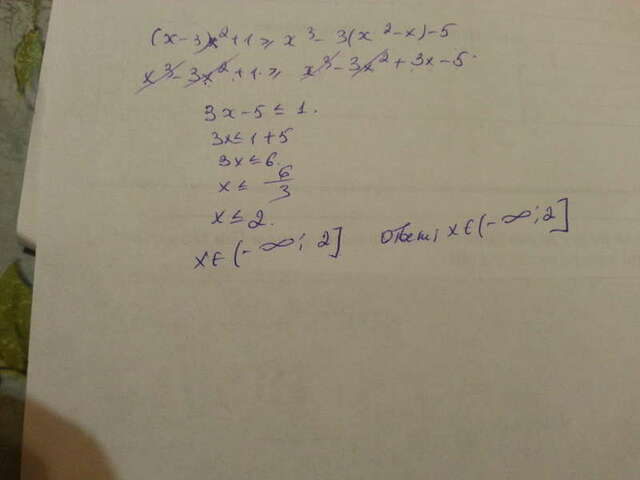 (x-3)x²+1 ≥ x³-3(x²-x)-5
x³-3x²+1 ≥ x³-3x²+3x-5.
3x-5 ≤ 1.
3x ≤ 1+5
3x ≤ 6.
x ≤ 6/3
x ≤ 2.
x∈(-∞; 2] Ответ: x∈(-∞; 2]